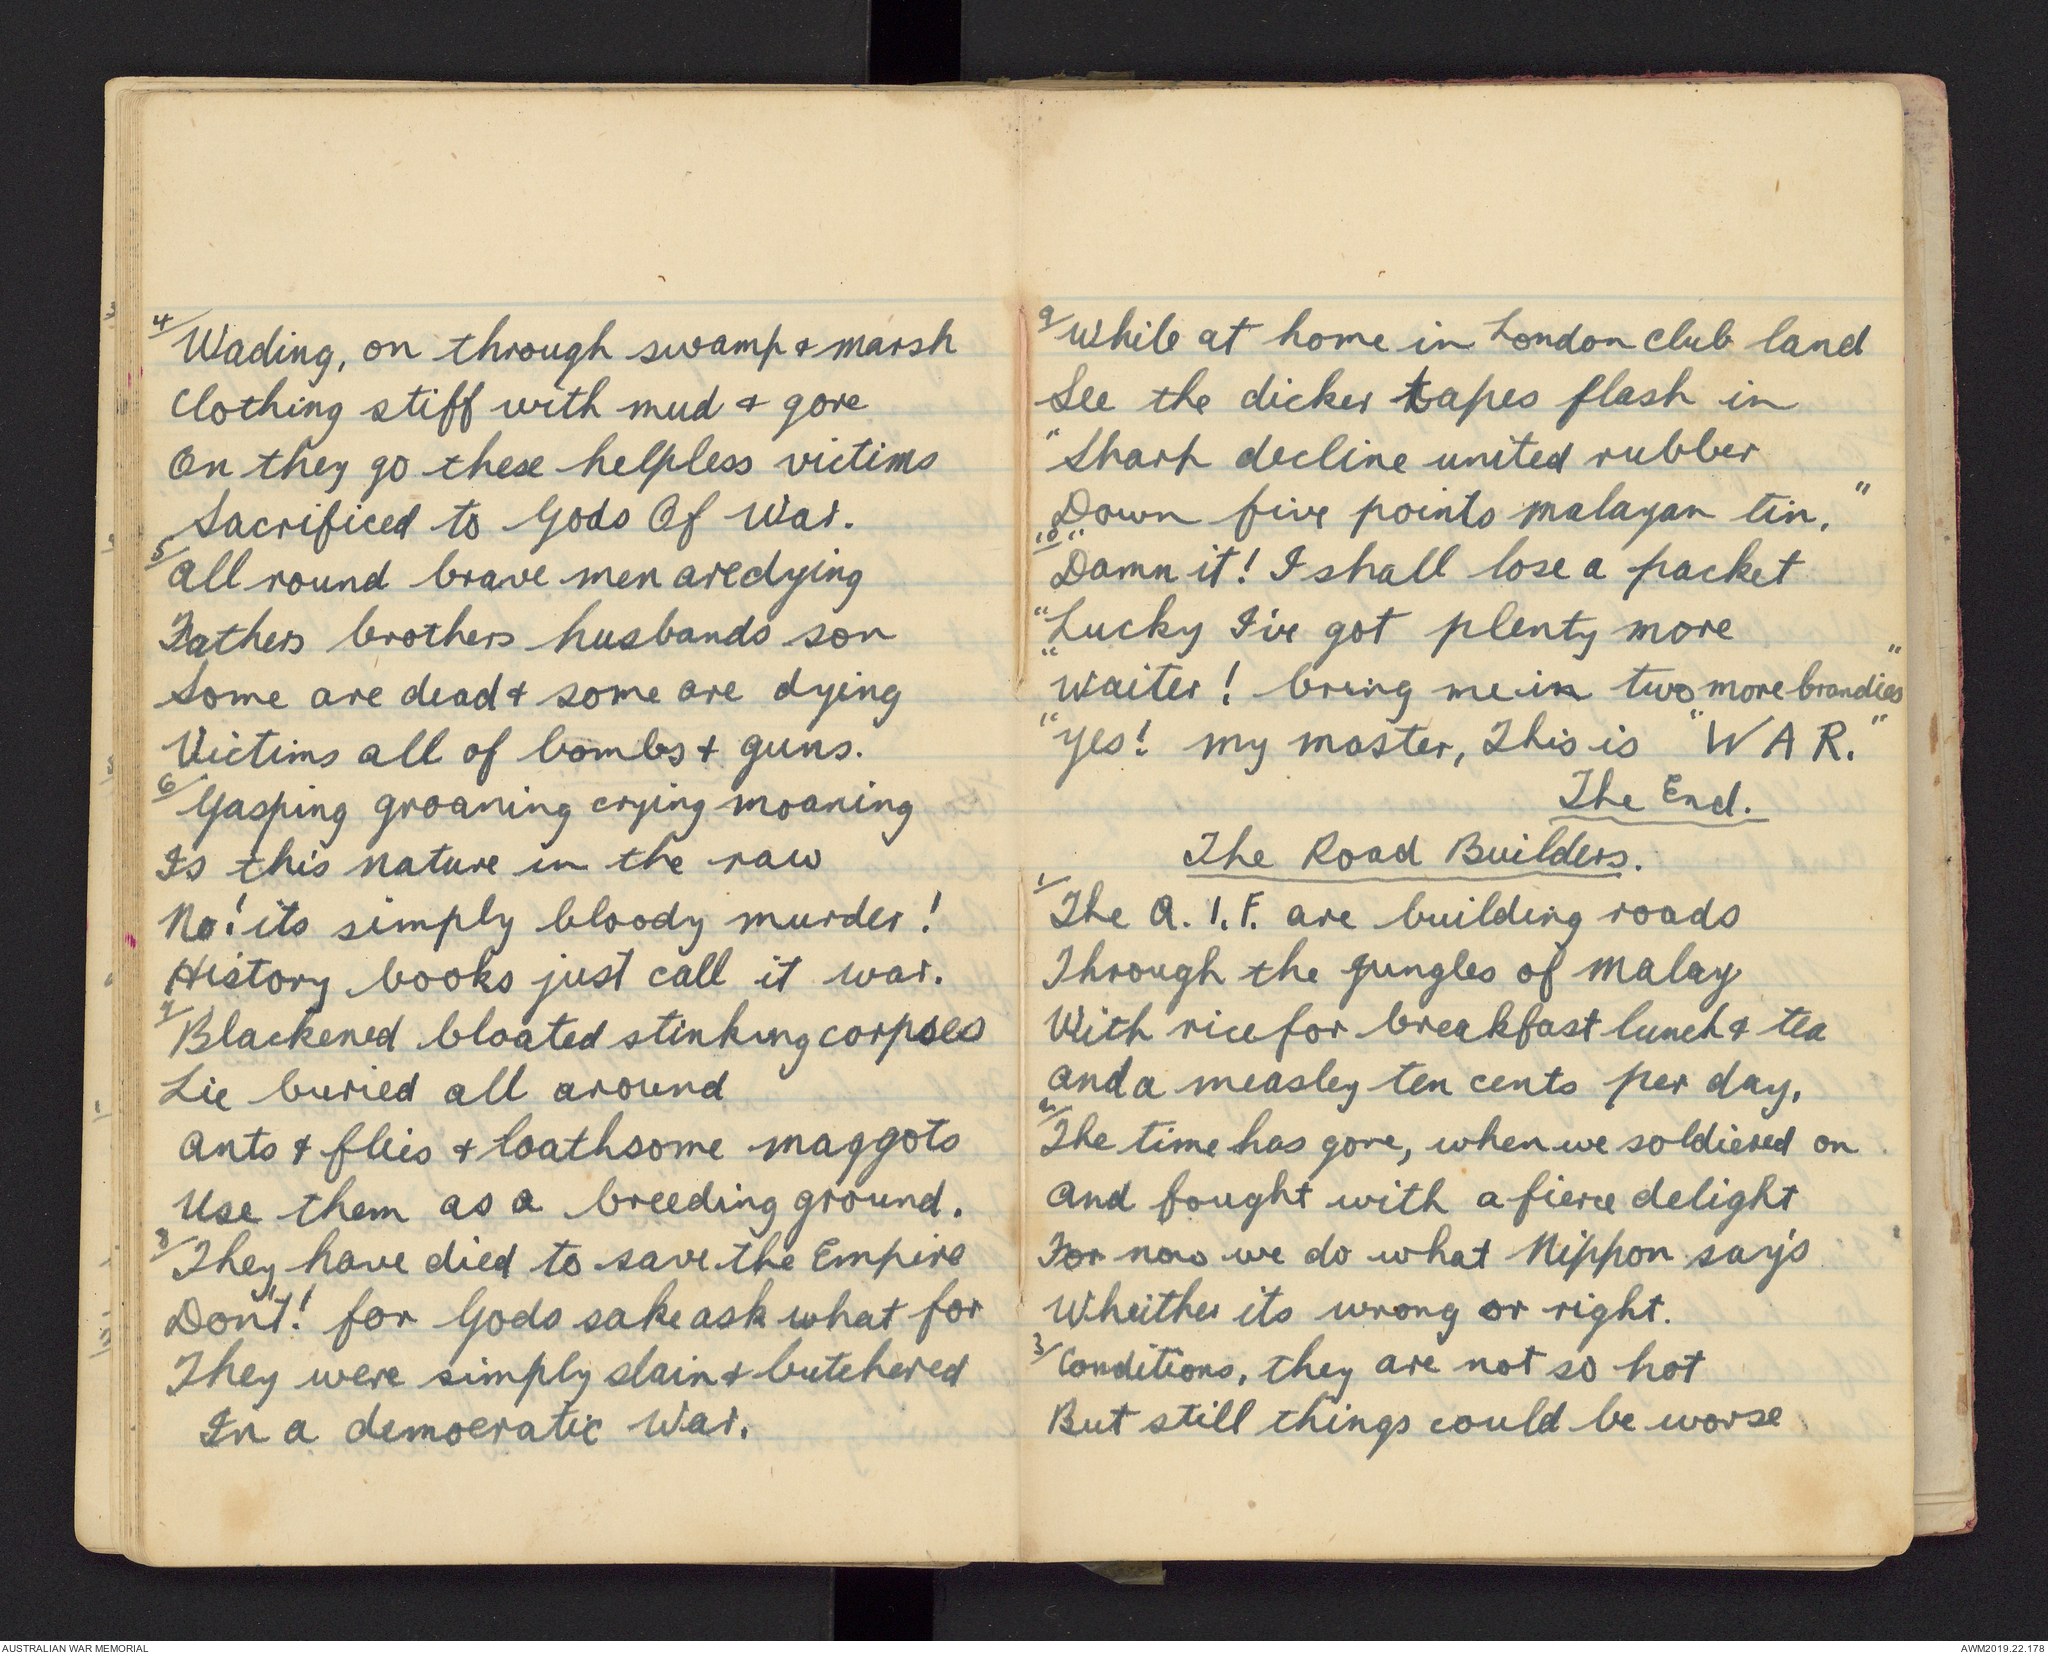 4/ Wading, on through swamp & marsh
Clothing stiff with mud & gore
On they go these helpless victims
Sacrificed to Gods Of War.
5/ All round brave men are dying
Fathers brothers husbands son
Some are dead & some are dying
Victims all of bombs & guns.
6/ Gasping groaning crying moaning
Is this nature in the raw
No! its simply bloody murder!
History books just call it war.
7/ Blackened bloated stinking corpses
Lie buried all around
Ants & flies & loathsome maggots
Use them as a breeding ground.
8/ They have died to save the Empire
Don't! for Gods sake ask what for
They were simply slain & butchered
In a democratic War.
9/ While at home in London club land
See the dicker tapes flash in
"Sharp decline united rubber
Down five points malayan tin."
10/ "Damn it! I shall lose a packet
"Lucky I've got plenty more
"Waiter! bring me in two more brandies"
"Yes! my master, This is "WAR."
The End.
The Road Builders.
1/ The A.I.F. are building roads
Through the jungles of Malay
With rice for breakfast lunch & tea
And a measley ten cents per day,
2/ The time has gone, when we soldiered on
And fought with a fierce delight
For now we do what Nippon say's
Wheither its wrong or right.
3/ Conditions, they are not so hot
But still things could be worse
AUSTRALIAN WAR MEMORIAL
AWM2019.22.178